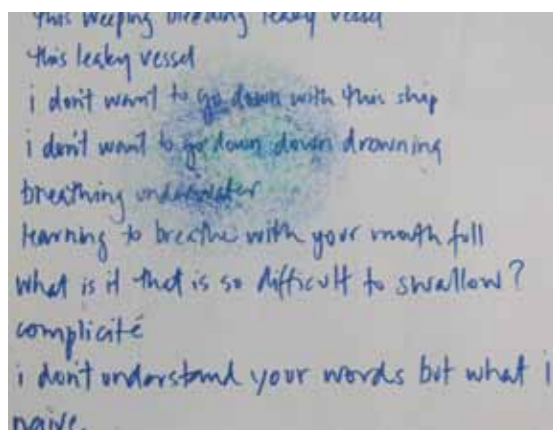 this weeping bleeding leaky vessel
this leaky vessel
i don't want to go down with this ship
i don't want to go down down drowning
breathing underwater
learning to breathe with your mouth full
what is it that is so difficult to swallow?
complicité
i don't understand your words but what i
naive.